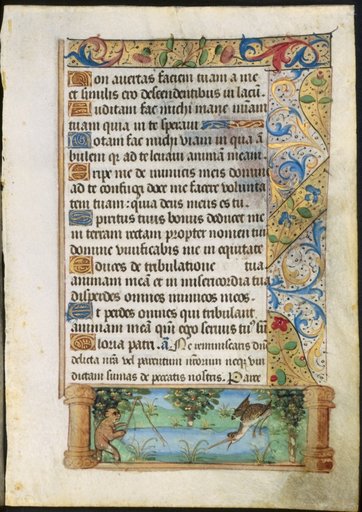 Non avertas faciem tuam a me
et similis ero descendentibus in lacū.
Auditam fac michi mane mīam
tuam quia in te speravi
Notam fac michi viam in qua ā
bulem qr ad te levavi animā meam.
Eripe me de inimicis meis domine
ad te confugi doce me facere volunta
tem tuam: quia deus meus es tu.
Spiritus tuus bonus deducet me
in terram rectam propter nomen tuū
domine vivificabis me in equitate
Educes de tribulatione tua
animam meā et in misericordia tua
disperdes omnes inimicos meos.
Et perdes omnes qui tribulant
animam meā qm̄ ego servus tuꝰ sū
Gloria patri. ā. Ne reminiscaris dn̄e
delicta nr̄a vel parentum nr̄orum neqꝫ vin
dictam sumas de peccatis nostris. Pater